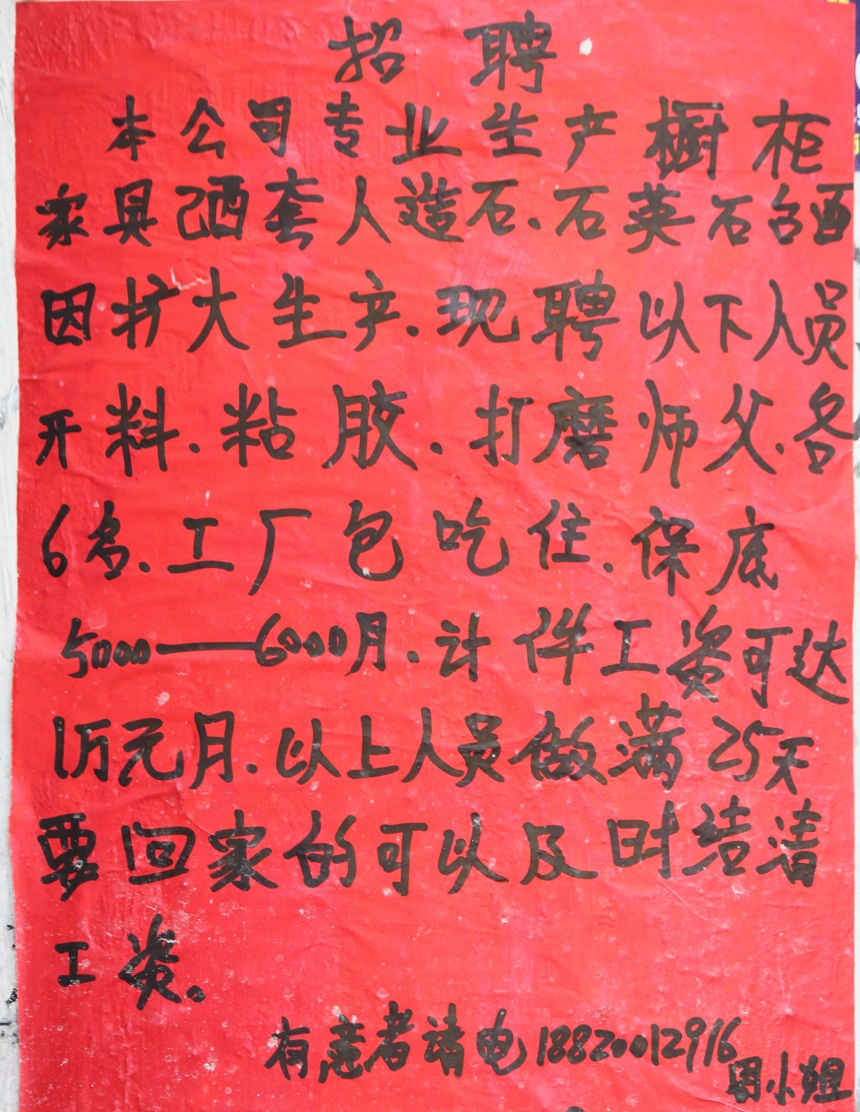 招聘
本公司专业生产橱柜
家具酒套人造石.石英石台面
因扩大生产.现聘以下人员
开料.粘胶.打磨.师父.各
6名.工厂包吃住.保底
5000——6000月.计件工资可达
1万元月.以上人员做满25天
要回家的可以及时结清
工资。
有意者请电18820012916
小姐